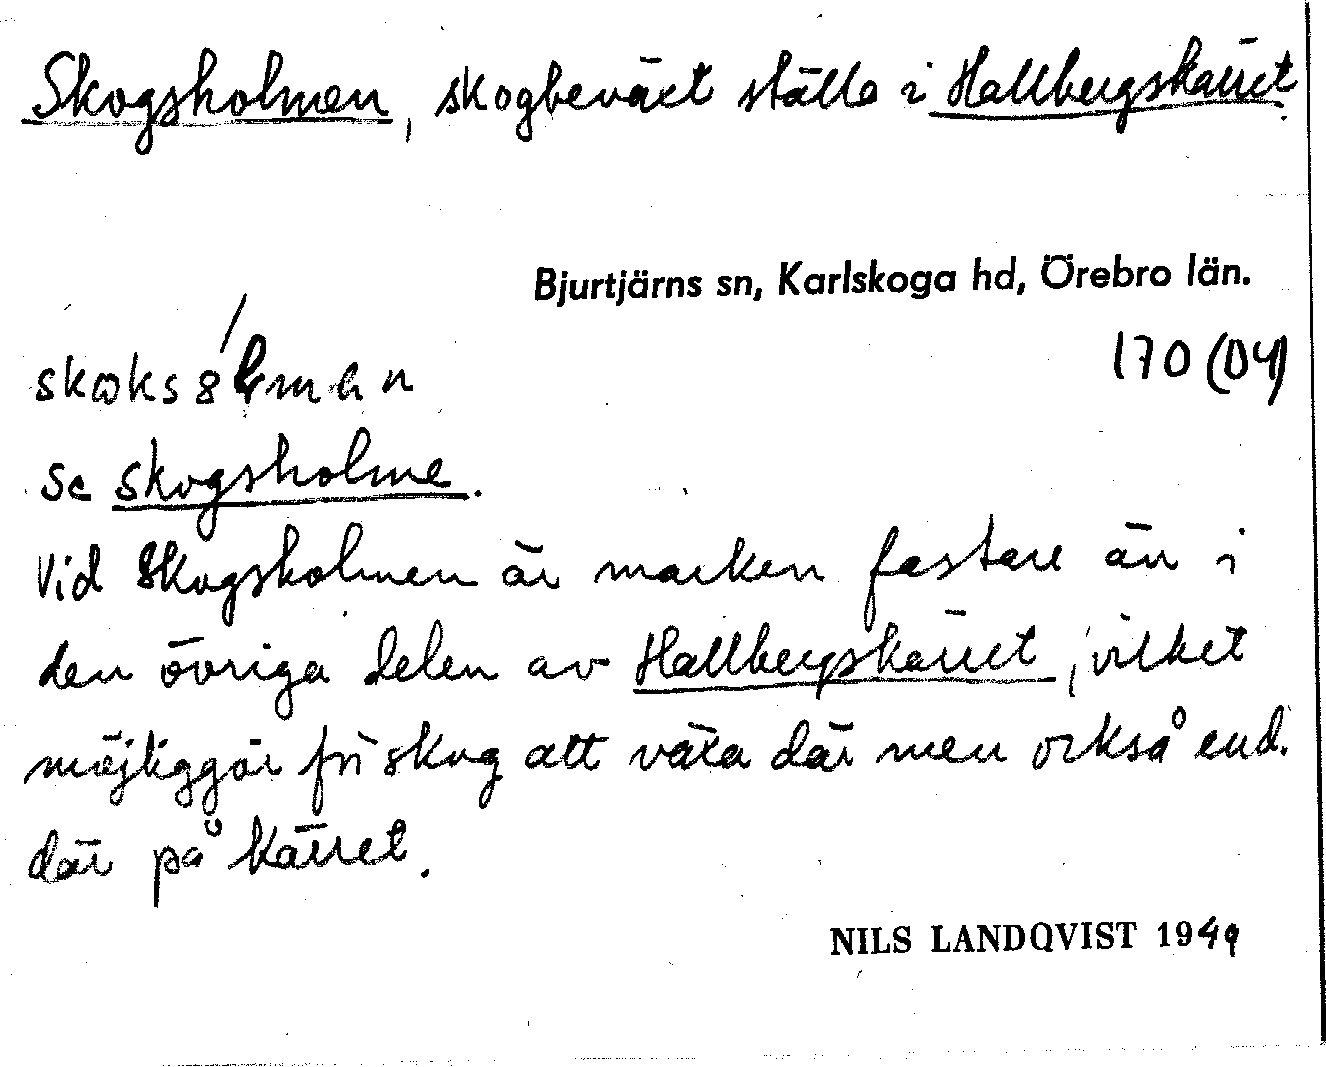 Skogsholmen, skogbeväxt ställe i Hallbergskärret.
Bjurtjärns sn, Karlskoga hd, Örebro län.
170 (04)
Se Skogsholme.
Vid Skogsholmen är marken fastare än i
den övriga delen av Hallbergskärret, vilket
möjliggör för skog att växa där men också end.
där på kärret.
NILS LANDQVIST 1949